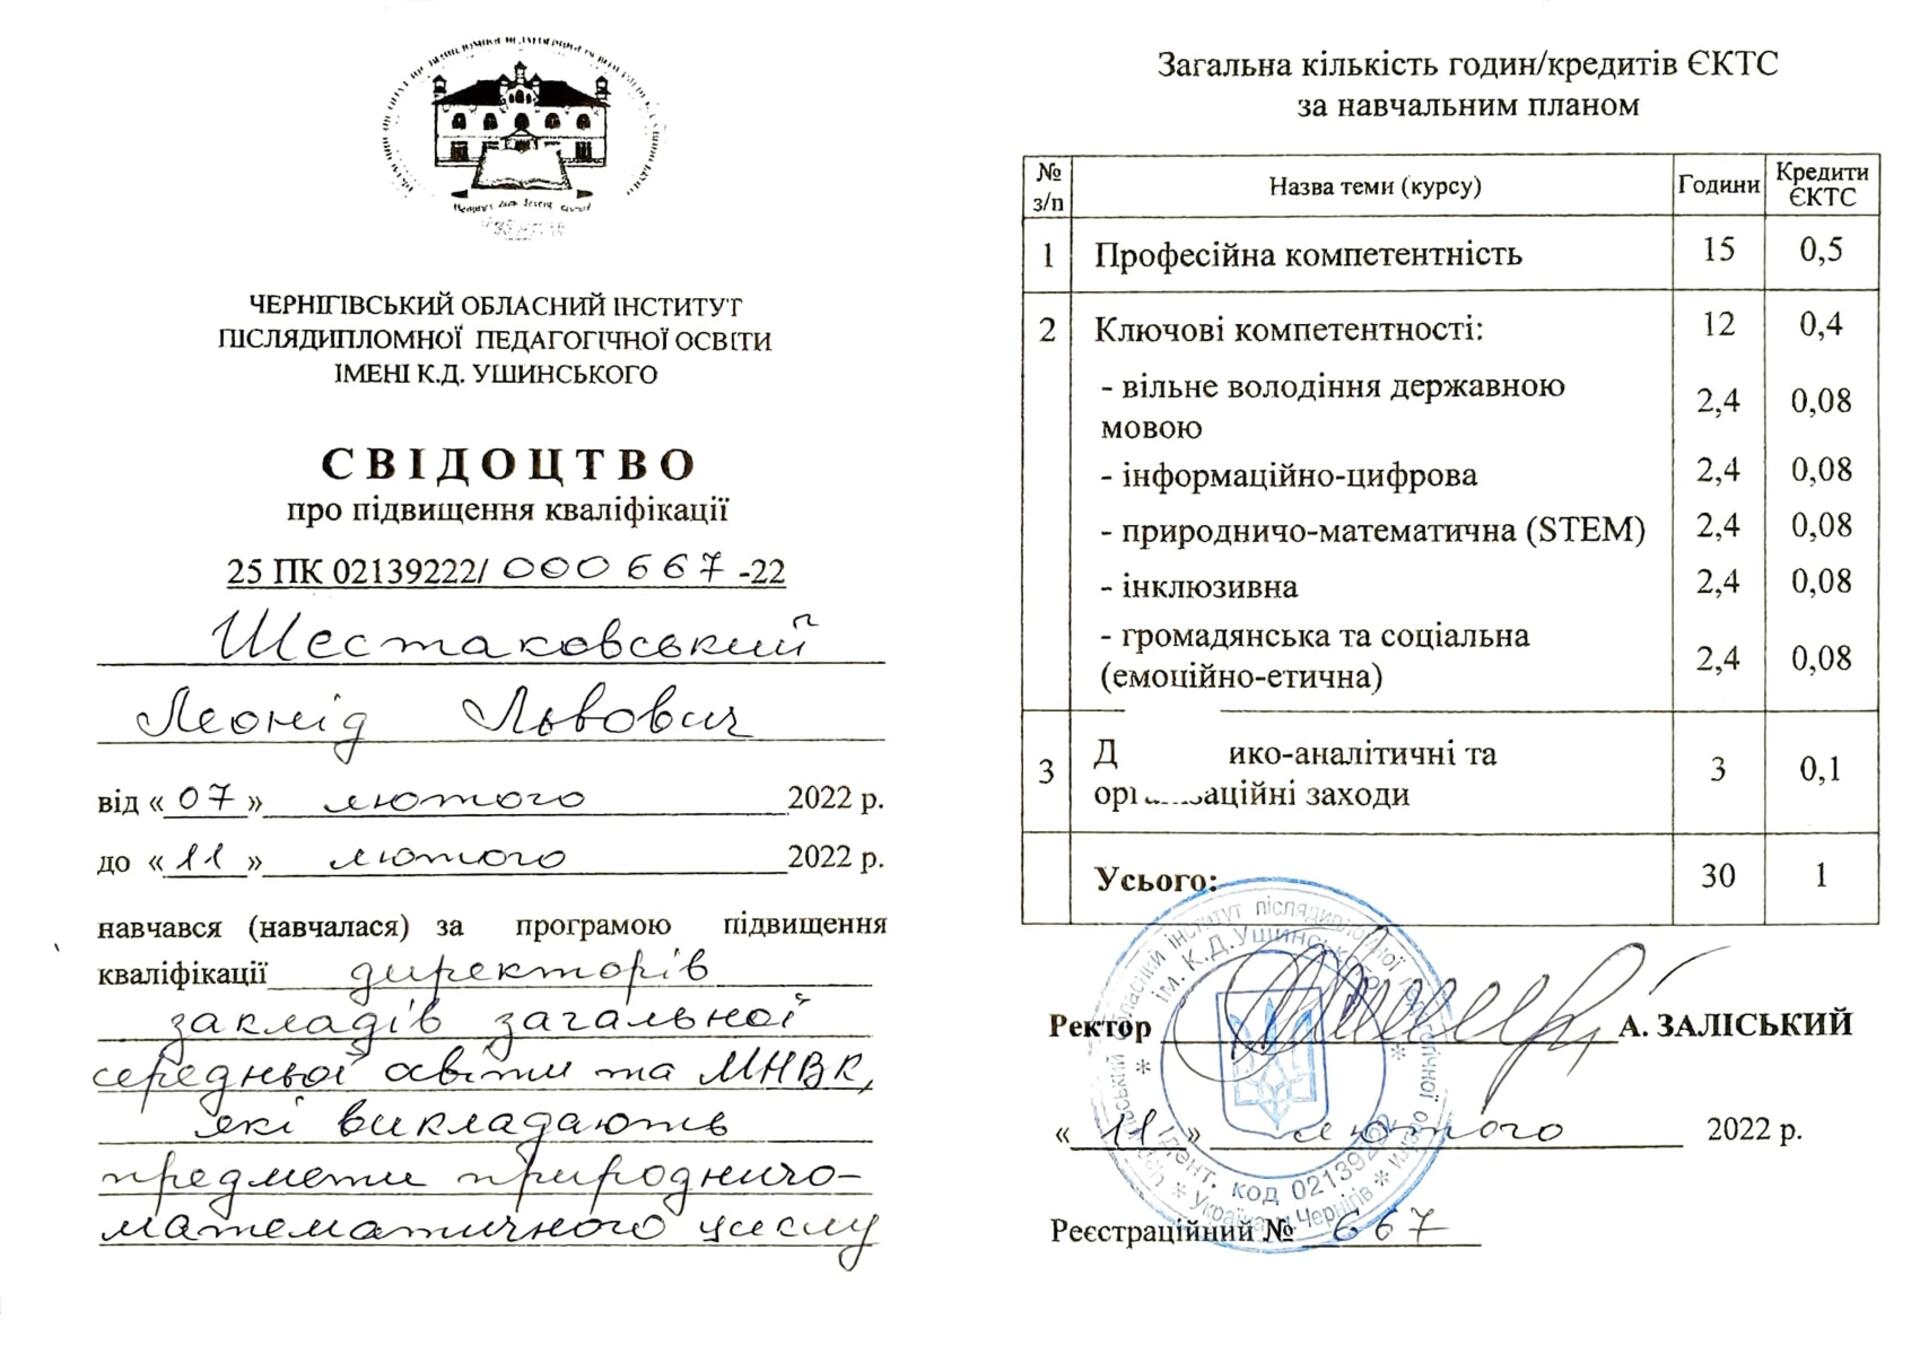 ЧЕРНІГІВСЬКИЙ ОБЛАСНИЙ ІНСТИТУТ
ПІСЛЯДИПЛОМНОЇ ПЕДАГОГІЧНОЇ ОСВІТИ
ІМЕНІ К.Д. УШИНСЬКОГО
СВІДОЦТВО
про підвищення кваліфікації
25 ПК 02139222/ 000667 -22
Шестаковський
Леонід Львович
від «07» лютого 2022 р.
до «11» лютого 2022 р.
навчався (навчалася) за програмою підвищення
кваліфікації директорів
закладів загальної
середньої освіти та МНВК,
які викладають
предмети природничо-
математичного циклу
Загальна кількість годин/кредитів ЄКТС
за навчальним планом
№ з/п Назва теми (курсу) Години Кредити ЄКТС
1 Професійна компетентність 15 0,5
2 Ключові компетентності: 12 0,4
- вільне володіння державною
мовою 2,4 0,08
- інформаційно-цифрова 2,4 0,08
- природничо-математична (STEM) 2,4 0,08
- інклюзивна 2,4 0,08
- громадянська та соціальна
(емоційно-етична) 2,4 0,08
3 Д ико-аналітичні та 3 0,1
заходи
Усього: 30 1
Ректор А. ЗАЛІСЬКИЙ
«11» лютого 2022 р.
Реєстраційний № 667
ім. К.Д.Ушинського
Ідент. код 02139222
Україна м.Чернігів